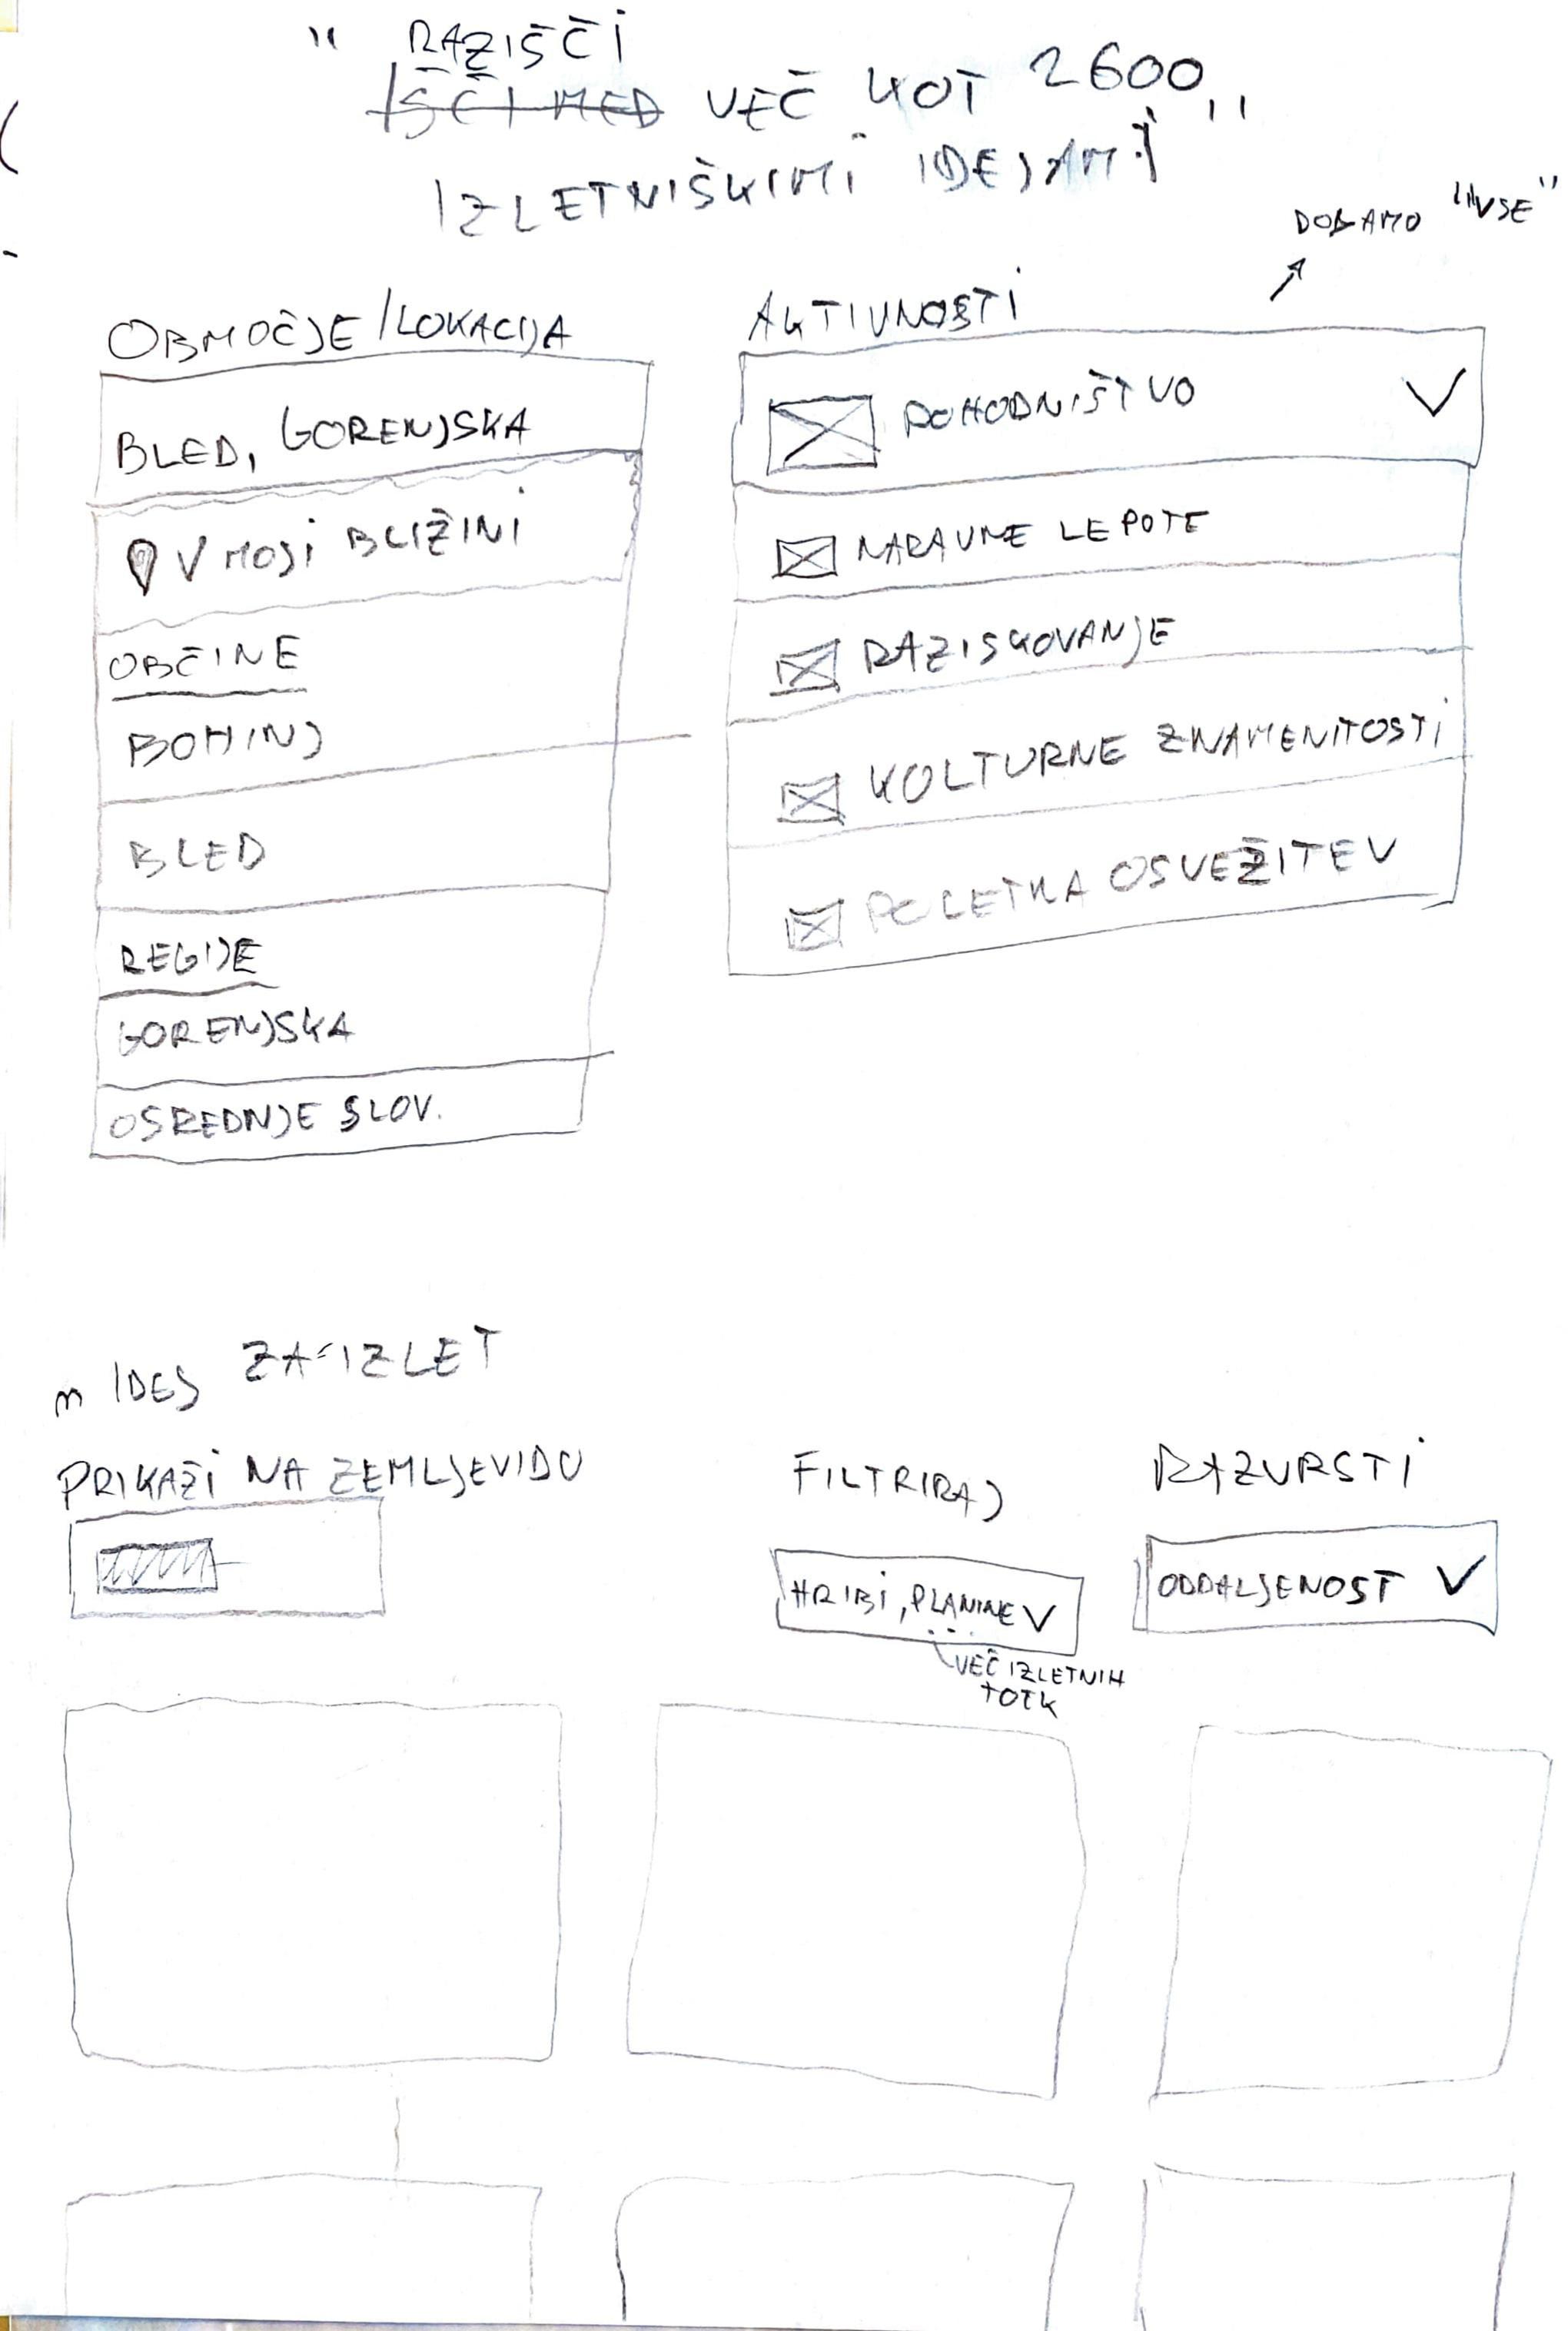 " RAZIŠČI
IŠČI MED VEČ KOT 2600 "
IZLETNIŠKIMI IDEJAMI
DODAMO "VSE"
OBMOČJE / LOKACIJA
BLED, GORENJSKA
V MOJI BLIŽINI
OBČINE
BOHINJ
BLED
REGIJE
GORENJSKA
OSREDNJE SLOV.
AKTIVNOSTI
POHODNIŠTVO
NARAVNE LEPOTE
RAZISKOVANJE
KOLTURNE ZNAMENITOSTI
POLETNA OSVEŽITEV
n IDEJ ZA IZLET
PRIKAŽI NA ZEMLJEVIDU
FILTRIRAJ
HRIBI, PLANINE
...
VEČ IZLETNIH
TOTK
RAZVRSTI
ODDALJENOST